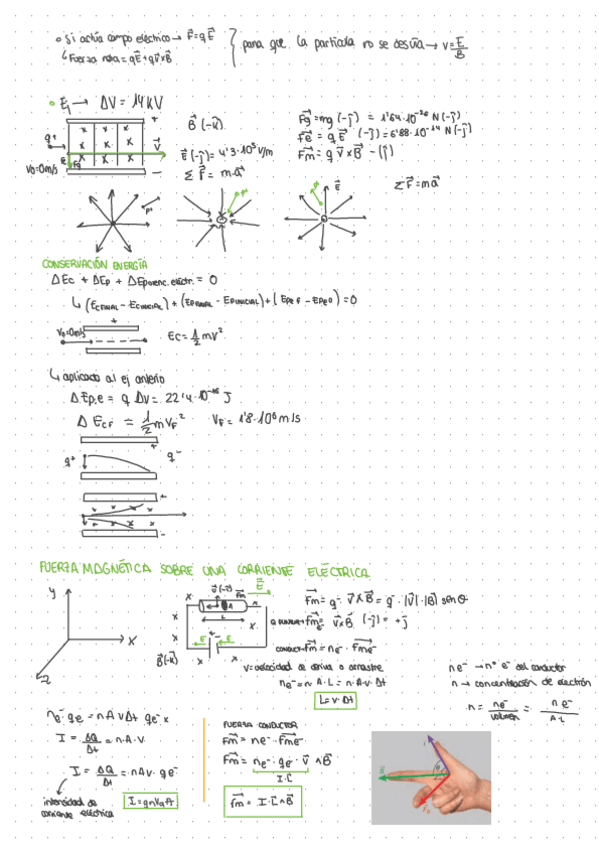 • Si actúa campo eléctrico → F⃗=qE⃗
↳ Fuerza neta = qE⃗+qv⃗xB⃗
para que la partícula no se desvía → v=E/B
• E₁ → ΔV = 14KV
+
x x x
x x x
x x x
q+
V⃗
E
Fg
V₀=0m/s
−
B⃗ (-k⃗)
E⃗(-j⃗)= 4'3·10⁵ V/m
Σ F⃗ = m·a⃗
Fg⃗ = mg (-j⃗) = 1'64·10⁻²⁶ N(-j⃗)
Fe⃗ = q E⃗ (-j⃗) = 6'88·10⁻¹⁴ N(-j⃗)
Fm⃗ = q v⃗ x B⃗ -(j⃗)
ΣF⃗=ma⃗
E⃗
CONSERVACIÓN ENERGÍA
ΔEc + ΔEp + ΔEpotenc. eléctr. = 0
↳ (Ec FINAL − Ec INICIAL) + (Ep FINAL − Ep INICIAL) + (Epe F − Epe 0) = 0
+
V₀=0m/s
Ec = 1/2 mv²
↳ aplicado al ej anterio
ΔEp.e = q ΔV = 22'4·10⁻¹⁶ J
Δ Ec F = 1/2 m VF²
VF = 1'8·10⁶ m/s
+
q+
q⁻
+
x x x x
x x x x
−
FUERZA MAGNÉTICA SOBRE UNA CORRIENTE ELÉCTRICA
y
x
z
v⃗(-i⃗)
Fm⃗
E⃗
A
L
x
E
B⃗(-k⃗)
Fm⃗ = q⁻ v⃗ x B⃗ = q⁻ · |v⃗|·|B⃗| sen θ
v⃗ x B⃗ (-j⃗) = +j
Fm⃗ = ne⁻ · Fme⁻
v = velocidad de deriva o arrastre
ne⁻ = n·A·L = n·A·v·Δt
L = v·Δt
ne⁻ → nº e⁻ del conductor
n → concentración de electrón
n = ne⁻/volumen = ne⁻/A·L
ne⁻ qe = n A v Δt qe⁻
I = ΔQ/Δt = n·A·v·
I = ΔQ/Δt = nAv·qe⁻
intensidad de corriente eléctrica
FUERZA CONDUCTOR
Fm⃗ = ne⁻ · Fme⁻
Fm⃗ = ne⁻ · qe⁻ · v⃗ ∧ B⃗
I·L⃗
fm⃗ = I·L⃗ ∧ B⃗